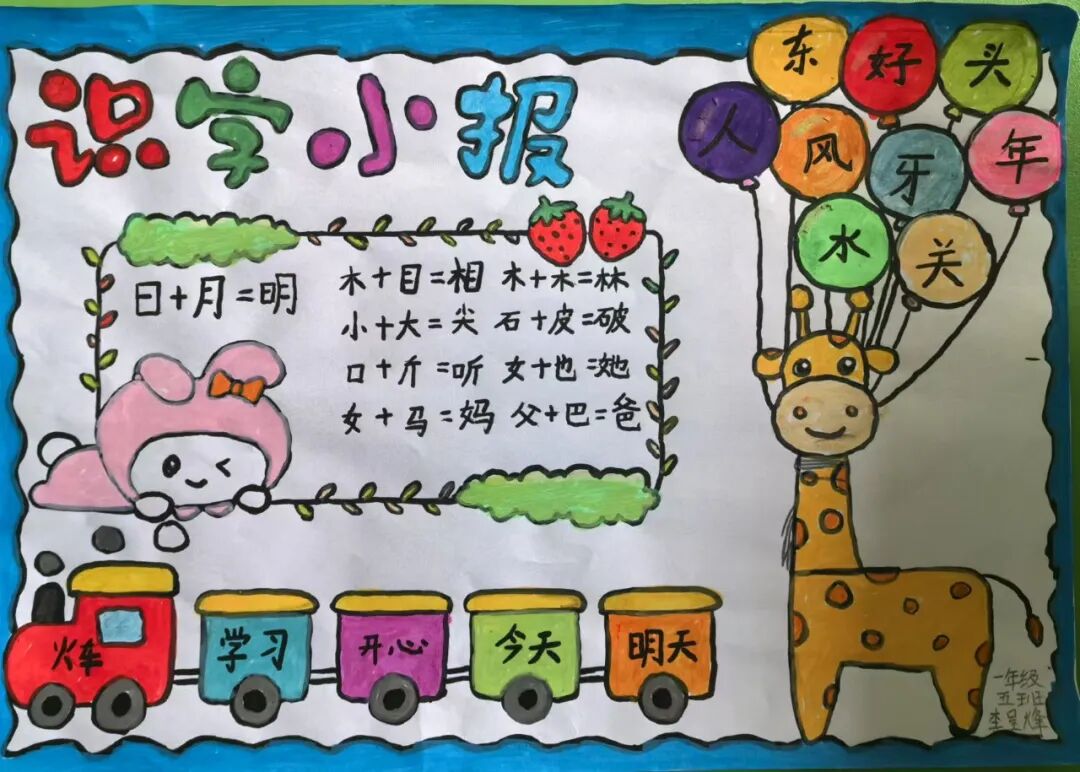 识字小报
东 好 头
人 风 牙 年
水 关
日+月=明
木+目=相 木+木=林
小+大=尖 石+皮=破
口+斤=听 女+也=她
女+马=妈 父+巴=爸
火车 学习 开心 今天 明天
一年级
五班